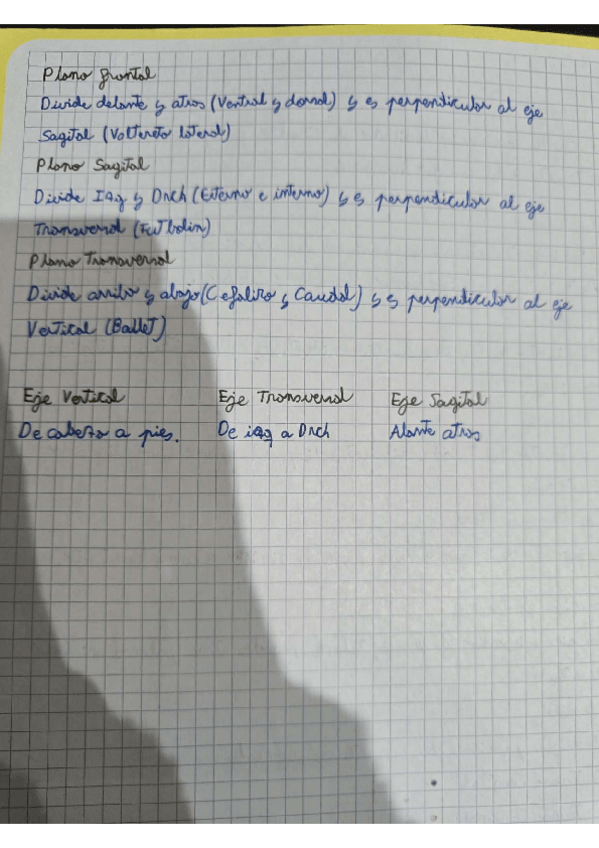 Plano frontal
Divide delante y atras (Ventral y dorsal) y es perpendicular al eje
Sagital (Voltereta lateral)
Plano Sagital
Divide Izq y Drch (Externo e interno) y es perpendicular al eje
Transversal (Futbolin)
Plano Transversal
Divide arriba y abajo (Cefalico y Caudal) y es perpendicular al eje
Vertical (Ballet)
Eje Vertical Eje Transversal Eje Sagital
De cabeza a pies. De izq a Drch Alante atras